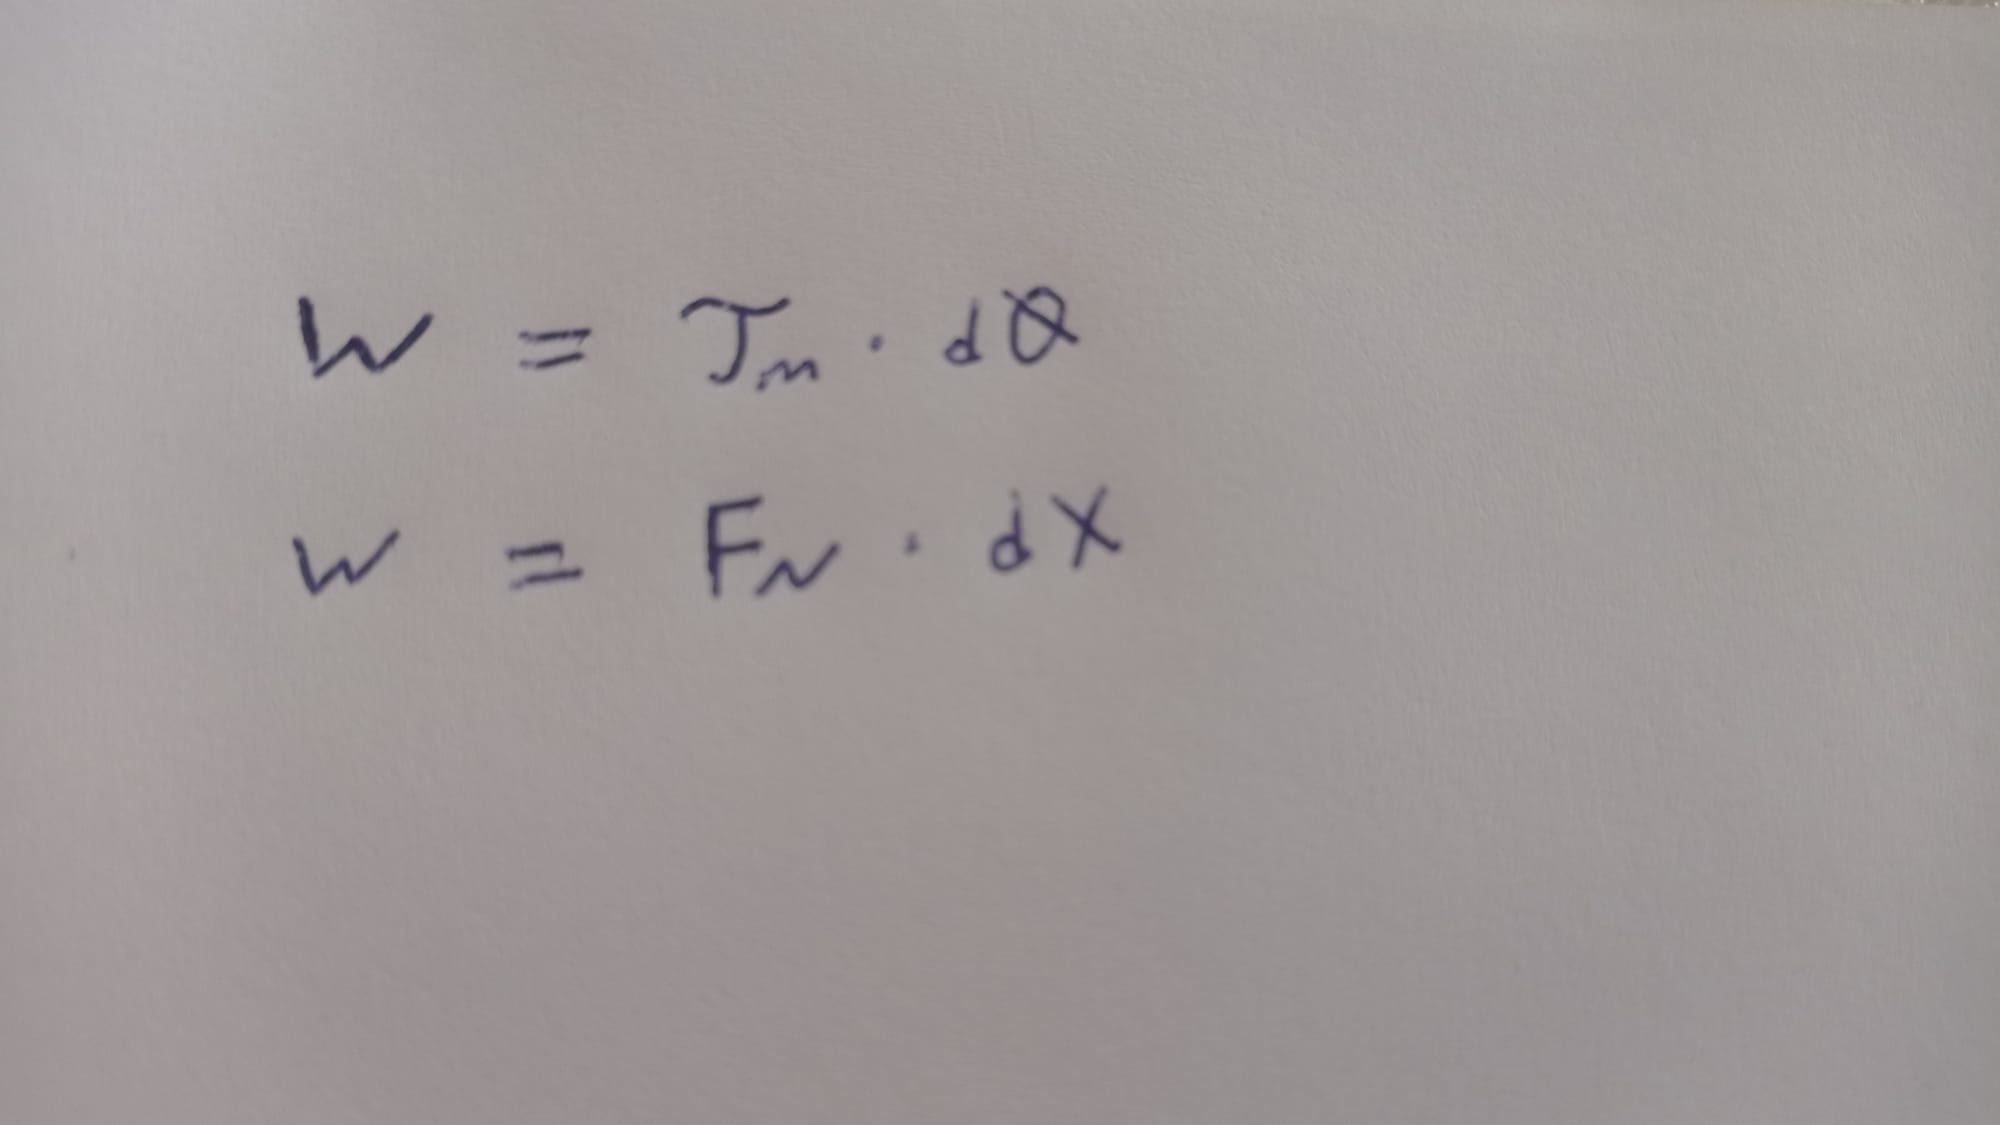 W = T_m · dθ
W = F_N · dX